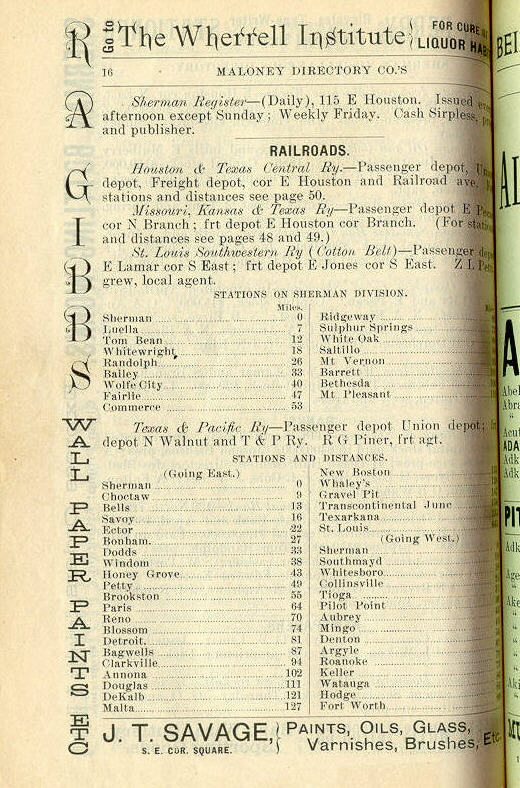 Go to The Wherrell Institute { FOR CURE
LIQUOR HAB
16 MALONEY DIRECTORY CO.'S
Sherman Register—(Daily), 115 E Houston. Issued
afternoon except Sunday; Weekly Friday. Cash Sirpless,
and publisher.
RAILROADS.
Houston & Texas Central Ry.—Passenger depot,
depot, Freight depot, cor E Houston and Railroad ave.
stations and distances see page 50.
Missouri, Kansas & Texas Ry—Passenger depot E
cor N Branch; frt depot E Houston cor Branch. (For
and distances see pages 48 and 49.)
St. Louis Southwestern Ry (Cotton Belt)—Passenger
E Lamar cor S East; frt depot E Jones cor S East. Z L
grew, local agent.
STATIONS ON SHERMAN DIVISION.
Miles.
Sherman 0
Luella 7
Tom Bean 12
Whitewright 18
Randolph 26
Bailey 33
Wolfe City 40
Fairlie 47
Commerce 53
Ridgeway
Sulphur Springs
White Oak
Saltillo
Mt Vernon
Barrett
Bethesda
Mt Pleasant
Texas & Pacific Ry—Passenger depot Union depot;
depot N Walnut and T & P Ry. R G Piner, frt agt.
STATIONS AND DISTANCES.
(Going East.)
Sherman 0
Choctaw 9
Bells 13
Savoy 16
Ector 22
Bonham. 27
Dodds 33
Windom 38
Honey Grove 43
Petty 49
Brookston 55
Paris 64
Reno 70
Blossom 74
Detroit. 81
Bagwells 87
Clarkville 94
Annona 102
Douglas 111
DeKalb 121
Malta 127
New Boston
Whaley's
Gravel Pit
Transcontinental Junc
Texarkana
St. Louis
(Going West.)
Sherman
Southmayd
Whitesboro
Collinsville
Tioga
Pilot Point
Aubrey
Mingo
Denton
Argyle
Roanoke
Keller
Watauga
Hodge
Fort Worth
J. T. SAVAGE, { PAINTS, OILS, GLASS,
S. E. COR. SQUARE. Varnishes, Brushes, Etc.
RAGIBBS
WALL PAPER PAINTS ETC